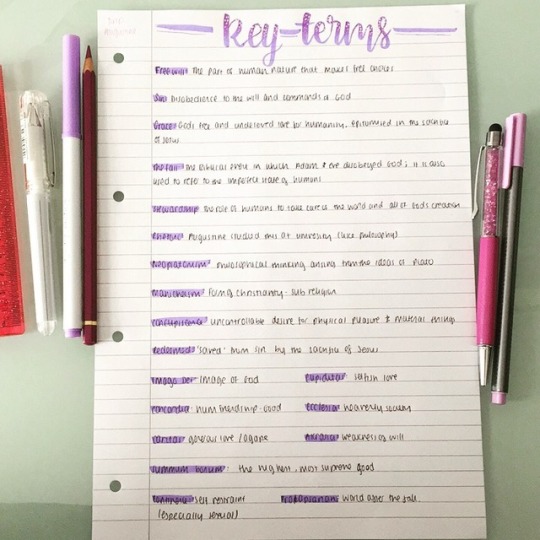 Key-terms
Free will: The part of human nature that makes free choices
Sin: Disobedience to the will and commands of God
Grace: God's free and undeserved love for humanity, epitomised in the sacrifice
of Jesus
The fall: The biblical event in which Adam & Eve disobeyed God; it is also
used to refer to the imperfect state of humans
Stewardship: The role of humans to take care of the world and all of God's creation
Rhetoric: Augustine studied this at university (like philosophy)
Neoplatonism: Philosophical thinking arising from the ideas of Plato
Manichaeism: Christianity-sub religion
uncontrollable desire for physical pleasure & material things
Redeemed: 'saved' from sin by the sacrifice of Jesus
Imago Dei: image of God
Cupiditas: selfish love
Concordia: human friendship-good
Ecclesia: heavenly society
Caritas: generous love /agape
Akrasia: weakness of will
Summum bonum: the highest, most supreme good
self restraint
world after the fall.
(especially sexual)